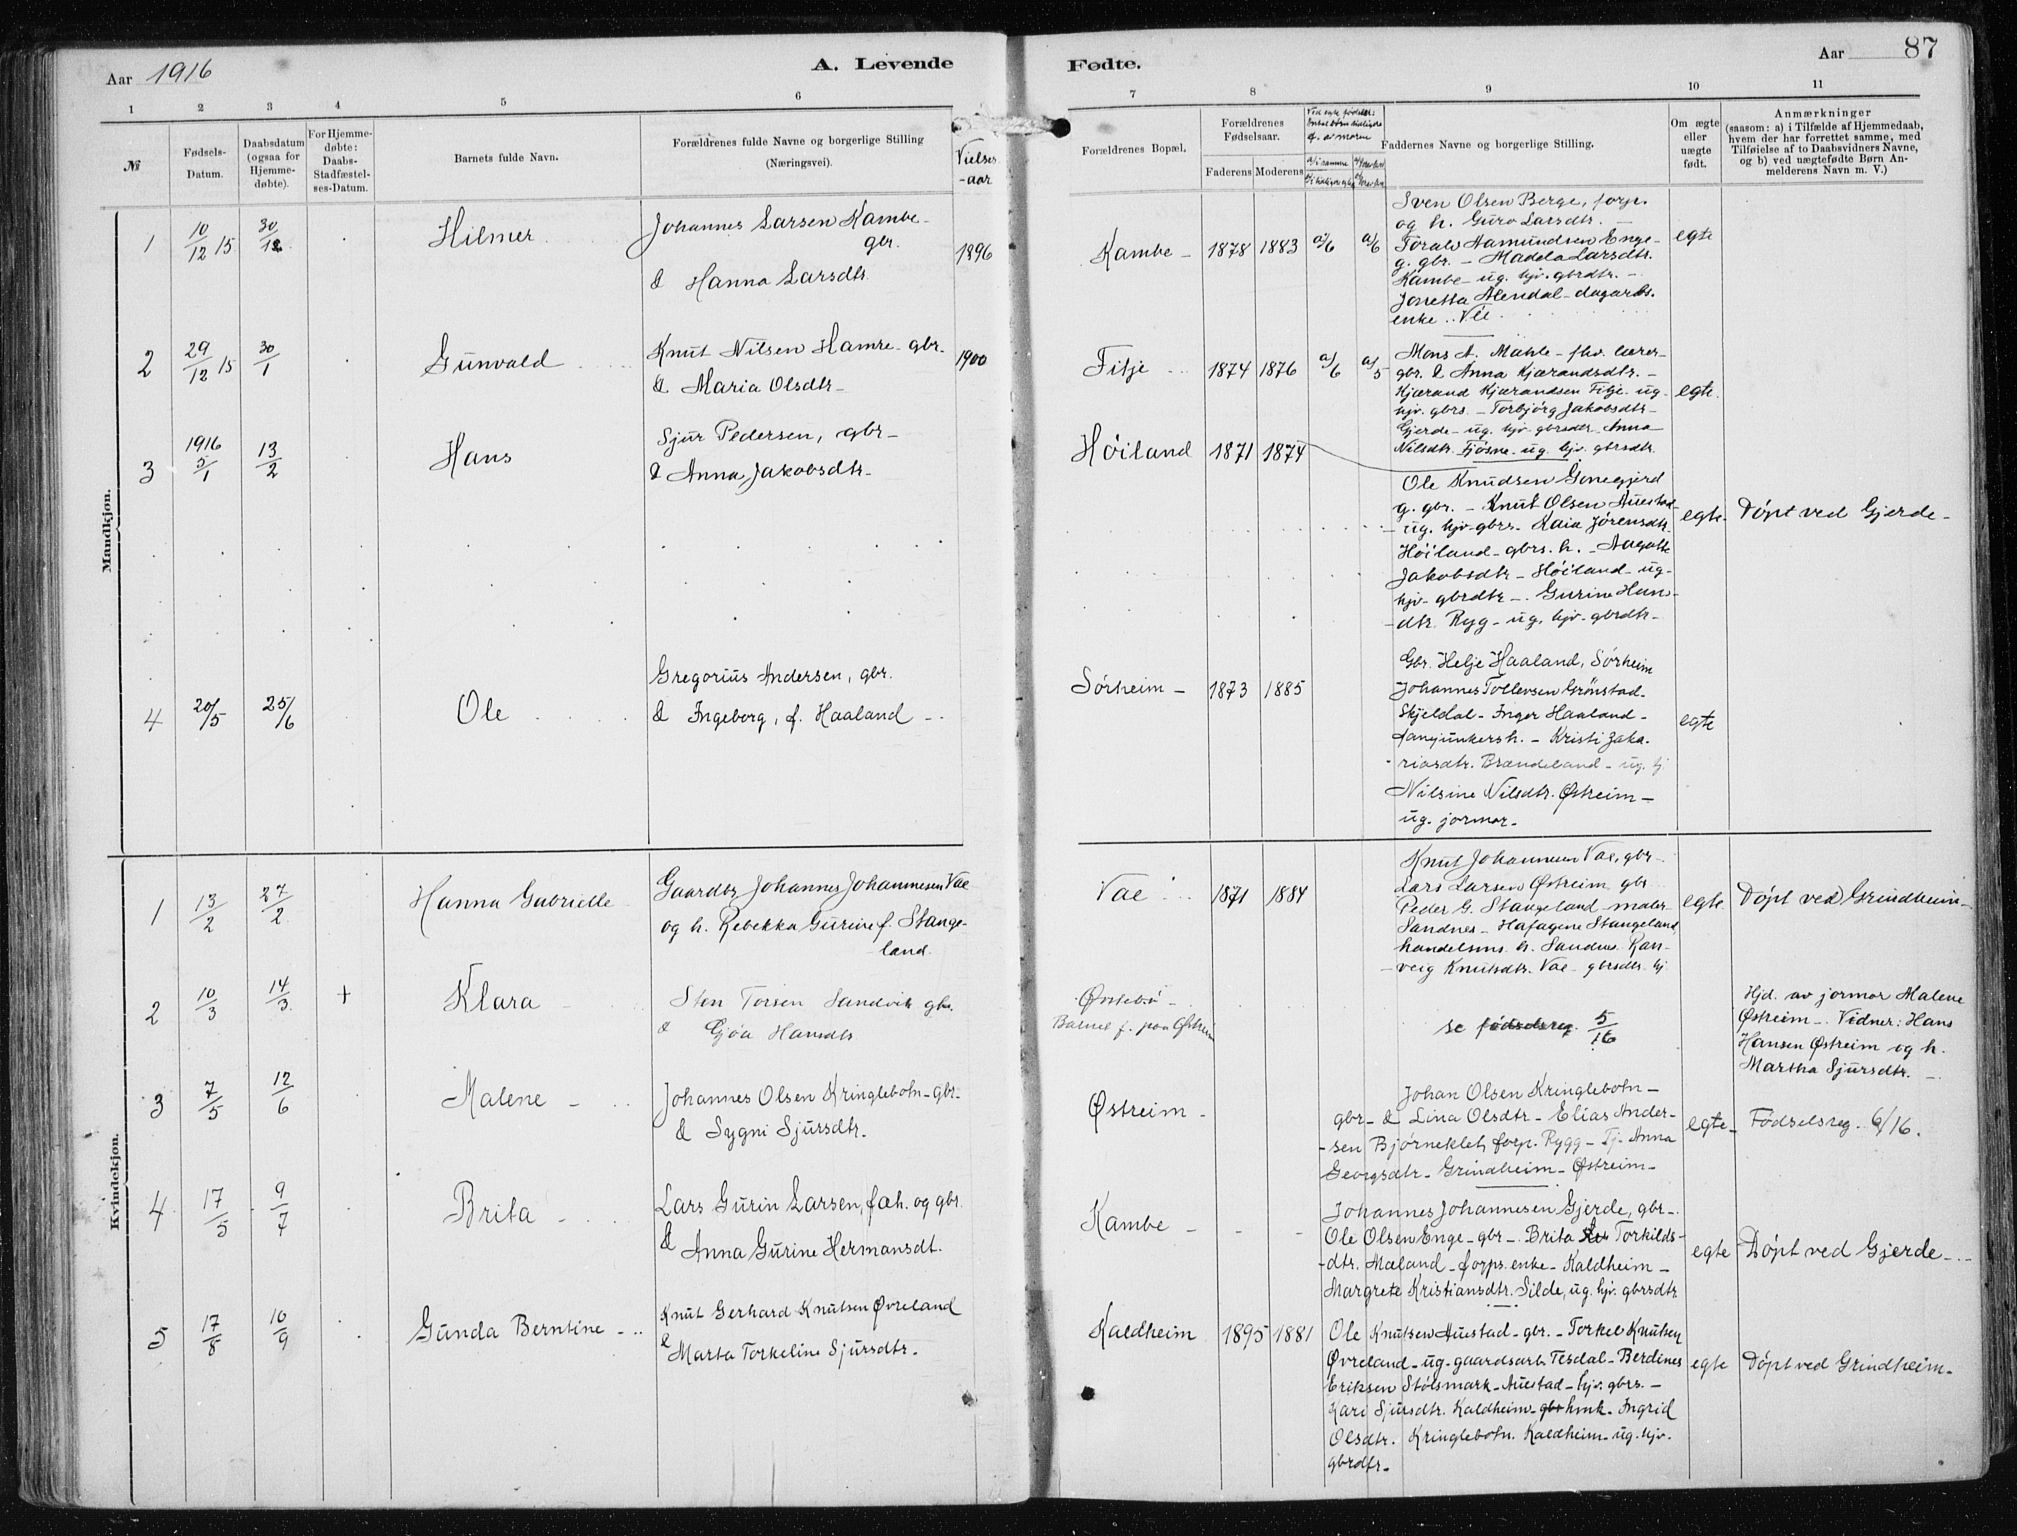 Aar 1916
A. Levende
Fødte.
Aar 87
1 2 3 4 5 6 7 8 9 10 11
№
Fødsels-
Datum.
Daabsdatum
(ogsaa for
Hjemme-
døbte).
For Hjemme-
døbte:
Daabs-
Stadfæstel-
ses-Datum.
Barnets fulde Navn.
Forældrenes fulde Navne og borgerlige Stilling
(Næringsvei).
Vielses
-aar
Forældrenes Bopæl.
Forældrenes
Fødselsaar.
Faderens Moderens
Faddernes Navne og borgerlige Stilling.
Om ægte
eller
uægte
født.
Anmærkninger
(saasom: a) i Tilfælde af Hjemmedaab,
hvem der har forrettet samme, med
Tilføielse af to Daabsvidners Navne,
og b) ved uægtefødte Børn An-
melderens Navn m. V.)
Mandkjøn.
1 10/12 15 30/12 Hilmer
Johannes Larsen Kambe-
gbr.
& Hanna Larsdtr.
1896
Kambe - 1878 1883 a/6 a/6
Sven Olsen Berge, forp.
og h. Guro Larsdtr. -
Toralv Aamundsen Enge-
g. gbr. - Madela Larsdtr.
Kambe - ug. hjv. gbrdtr. -
Jonetta Alendal - dagarb.
enke .. Vee
egte
2 29/12 15 30/1 Gunvald
Knut Nilsen Hamre - gbr.
& Maria Olsdtr -
1900
Fitje 1874 1876 a/6 a/5
Mons A. Mahle - fhv. lærer-
gbr. & Anna Kjærandsdtr. -
Kjærand Kjærandsen Fitje ug.
hjv. gbrs. - Torbjørg Jakobsdtr -
Gjerde - ug. hjv. gbrsdtr - Anna
Nilsdtr. Fjøsne - ug. hjv. gbrsdtr.
egte.
3 1916 5/1 13/2 Hans
Sjur Pedersen, gbr -
& Anna Jakobsdtr -
Høiland 1871 1874
Ole Knudsen Gonegjerd
g. gbr. - Knut Olsen Auestad -
ug. hjv. gbrs. Kaia Jørensdtr
Høiland - gbrs. h. - Aagotte
Jakobsdtr - Høiland - ug -
hjv - gbrdtr -. Gurine Han-
- dtr. Ryg - ug. hjv. gbrdtr -
egte. Døpt ved Gjerde -
4 20/5 25/6 Ole
Gregorius Andersen, gbr.
& Ingeborg, f. Haaland - .
Sørheim - 1873 1885
Gbr. Helje Haaland, Sørheim
Johannes Tollevsen Grønstad -
Skjeldal - Inger Haaland -
fanejunkersh. - Kristi Zaka-
- riasdtr. Brandeland - ug. hj
Nilsine Nilsdtr. Østreim -
ug. jormor -
egte
Kvindekjøn.
1 13/2 27/2 Hanna Gabrielle
Gaardbr Johannes Johannesen Vae
og h. Rebekka Gurine f. Stange-
land.
Vae 1871 1884
Knut Johannesen Vae, gbr -
Lars Larsen Østreim gbr
Peder G. Stangeland maler
Sandnes - Hafagene Stangeland
handelsms. h. Sandnes. Ran-
- veig Knutsdtr. Vae - gbrsdtr. hj
egte. Døpt ved Grindheim -
2 10/3 14/3 + Klara
Sten Torsen Sandvik gbr.
& Gjøa Hansdtr
Østebø -
Barnet f. paa Østreim
se fødselsreg. 5/16
Hjd. av jormor Malene
Østreim -. Vidner: Hans
Hansen Østreim og h.
Martha Sjursdtr. -
3 7/5 12/6 Malene -
Johannes Olsen Kringlebotn - gbr -
& Sygni Sjursdtr. -
Østreim -
Johan Olsen Kringlebotn -
gbr - & Lina Olsdtr - Elias Ander-
- sen Bjørneklet, forp. Rygg - Tj. Anna
Georgsdtr - Grindheim - Østreim -
egte - Fødselsreg. 6/16.
4 17/5 9/7 Brita -
Lars Gurin Larsen, fæh. og gbr.
& Anna Gurine Hermansdt.
Kambe -
Johannes Johannesen Gjerde, gbr -
Ole Olsen Enge - gbr -. Brita Torkilds-
- dtr. Mæland - forps. enke - Kaldheim -
Margrete Kristiansdtr. Silde, ug. hjv. gbrsdtr
egte Døpt ved Gjerde -
5 17/8 10/9 Gunda Berntine -
Knut Gerhard Knutsen Øvreland
& Marta Torkeline Sjursdtr. -
Kaldheim 1895 1881
Ole Knutsen Auestad - gbr. - Torkel Knutsen
Øvreland - ug - gaardsarb. Tesdal - Berdines
Eriksen Stølsmark - Auestad - hjv. gbrs. -
Kari Sjursdtr. Kaldheim - gbr hmk - Ingrid
Olsdtr. Kringlebotn. Kaldheim - ug. hjv.
gbrdtr -
egte Døpt ved Grindheim -